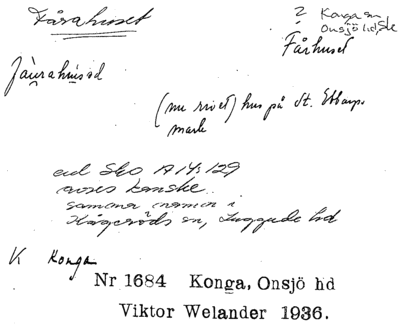 Fårahuset
? Konga sn
Onsjö hd, Sk
Fårhuset
(nu rivet) hus på St. Ebbarps
mark
enl Sko A 14: 129
avses kanske
samma namn i
Kågeröds sn, Luggude hd
K Konga
Nr 1684 Konga, Onsjö hd
Viktor Welander 1936.